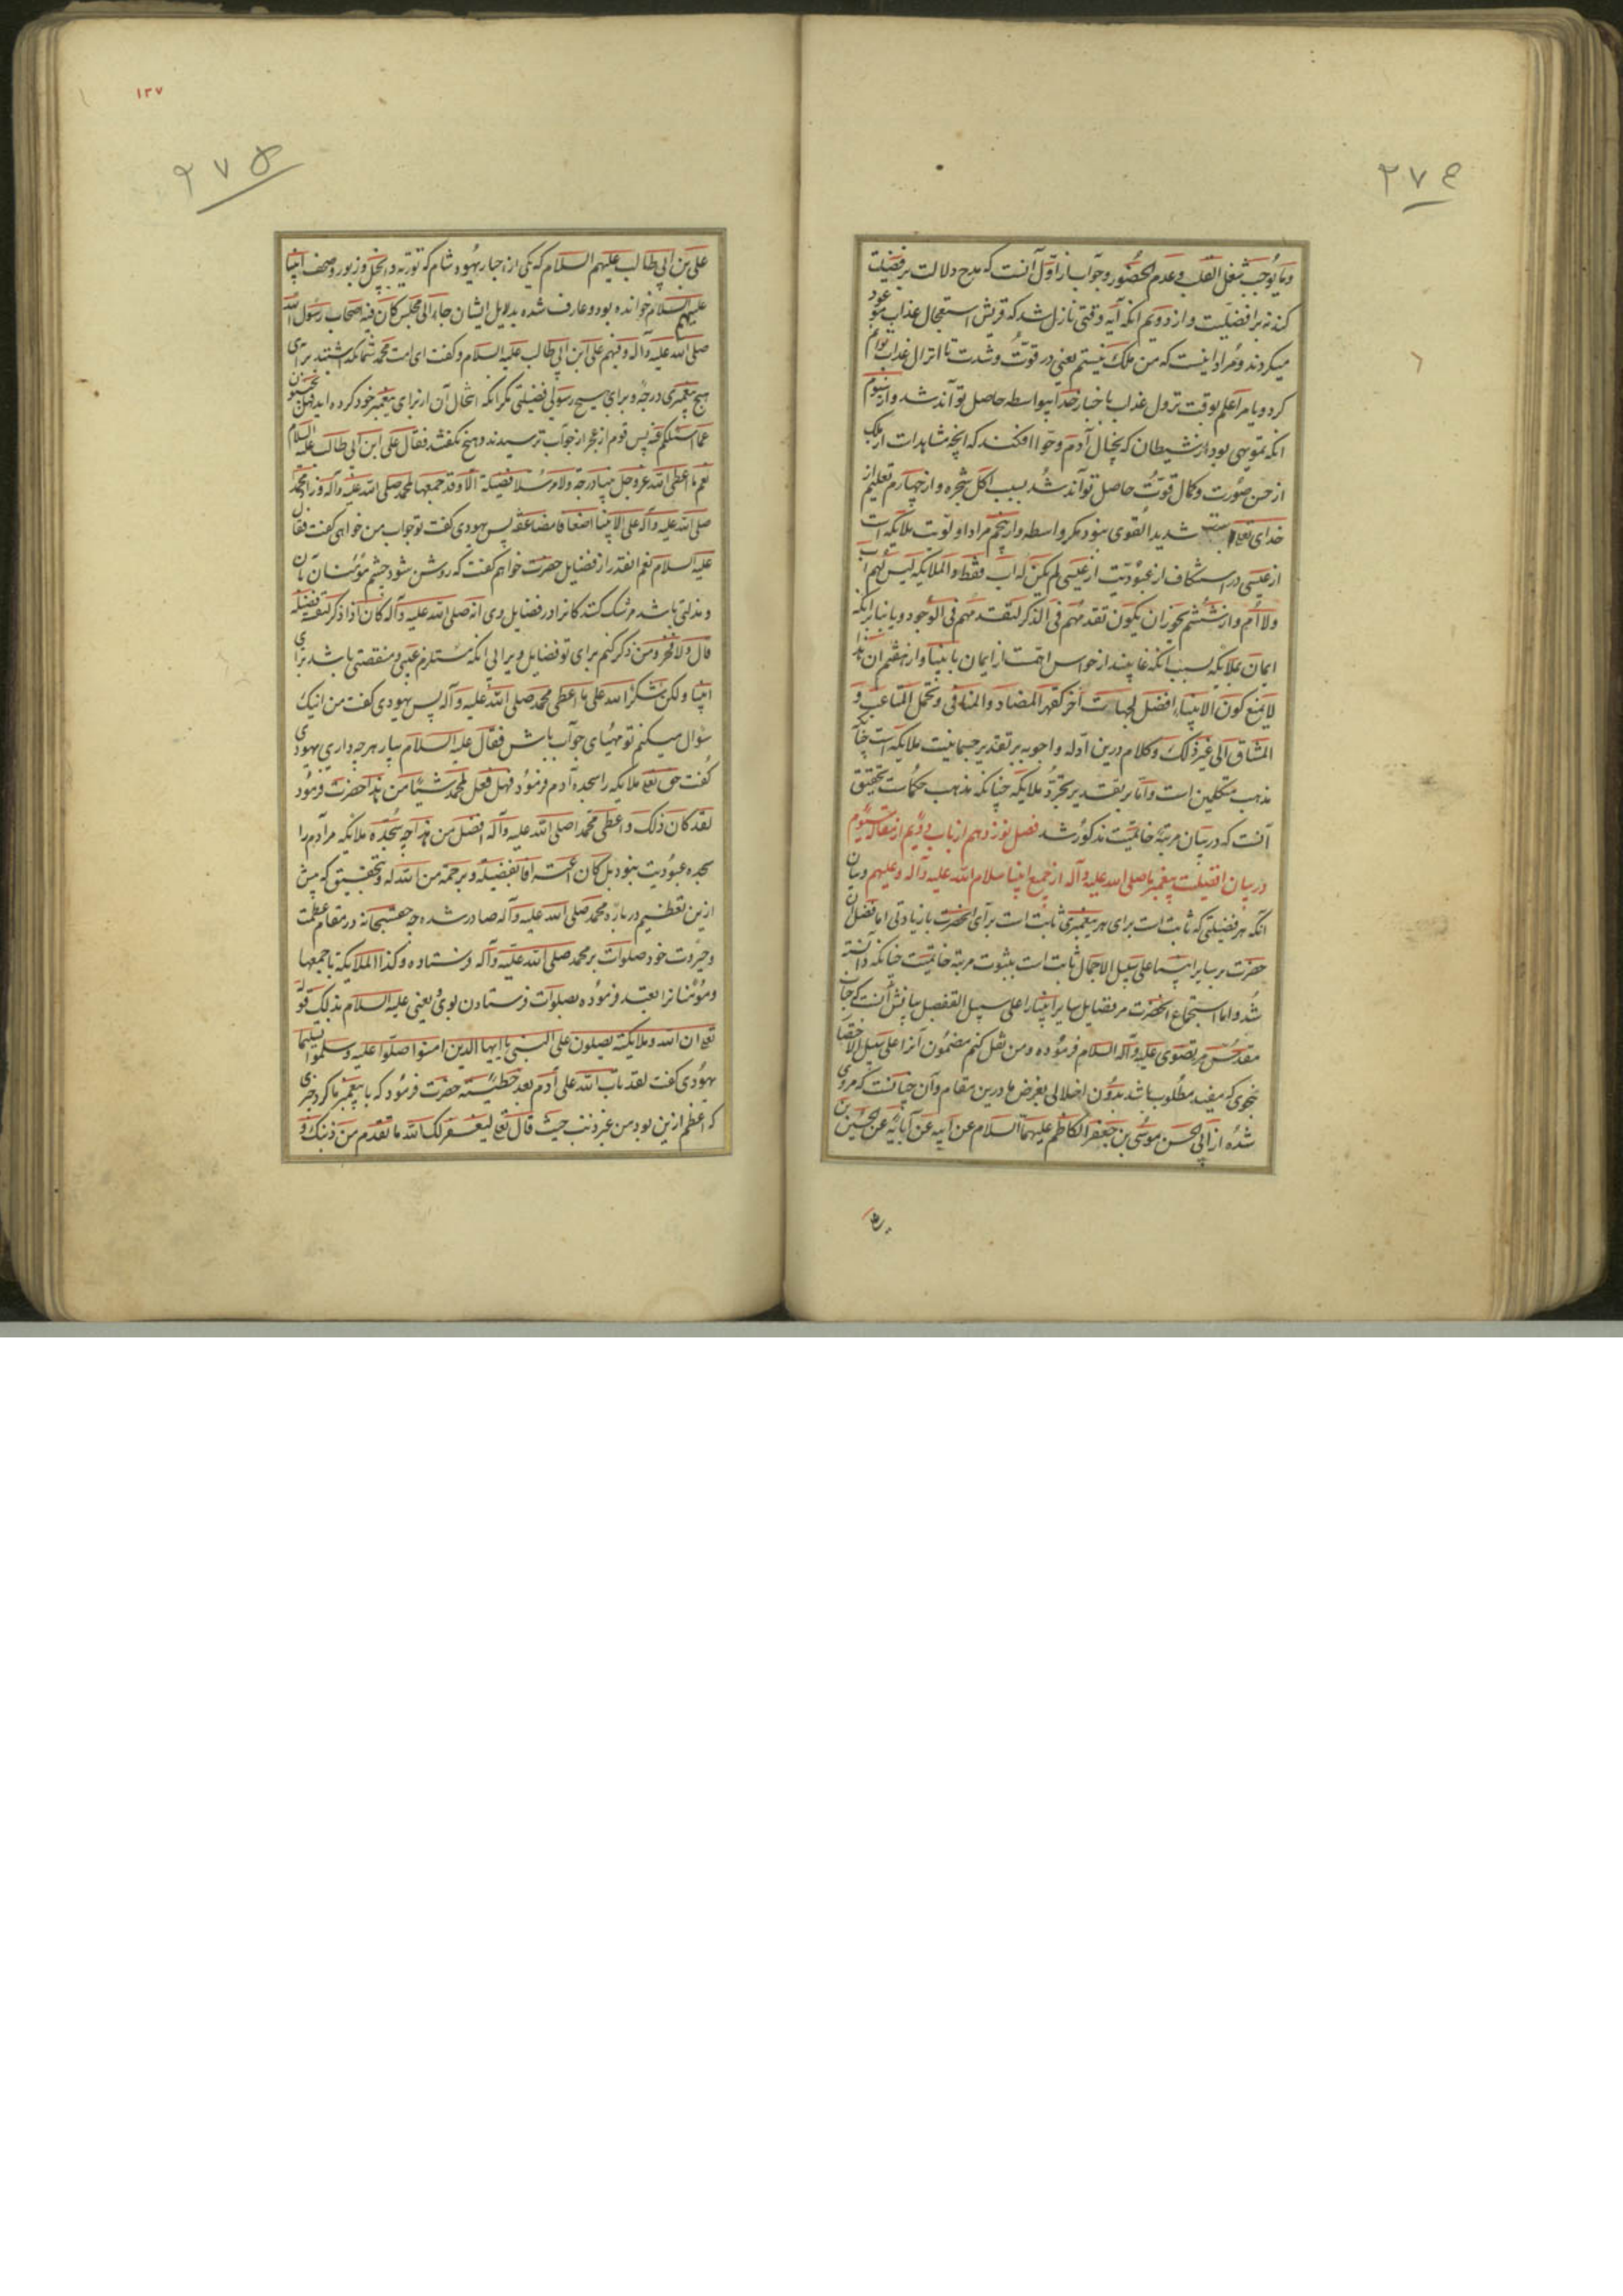 ٢٧٤
و ما یوجب شغل القلب و عدم الحضور و جواب از اول آنست که مدح دلالت بر فضیلت
کند نه بر افضلیت و از دویم انکه آیه وقتی نازل شد که قریش استعجال عذاب موعود
میکردند و مراد اینست که من ملک نیستم یعنی در قوت و شدت تا انزال عذاب توانم
کرد و یا مرا علم بوقت نزول عذاب باخبار خدا بیواسطه حاصل تواند شد و از سیوم
انکه تمویهی بود از شیطان که بخیال آدم و حوا افکند که انچه مشاهدات از ملک
از حسن صورت و کمال قوت حاصل تواند شد بسبب اکل شجره و از چهارم تعلیم از
خدای تعالی است شدید القوی نبود مکر واسطه و از پنجم مراد اولویت ملایکه است
از عیسی در استنکاف از عبودیت از عیسی لم یکن له اب فقط و الملایکه لیس لهم اب
ولا ام و از ششم یجوز ان یکون تقدمهم فی الذکر لتقدمهم فی الوجود و یا بنا برانکه
ایمان بملایکه بسبب انکه غایبند از حواس اهمست از ایمان بانبیا و از هفتم ان هذا
لا یمنع کون الانبیاء افضل لجهات اخر کقهر المضاد و المنافی و تحمل المتاعب و
المشاق الی غیر ذلک و کلام درین ادله و اجوبه بر تقدیر جسمانیت ملایکه است چنانکه
مذهب متکلمین است و اما بر تقدیر تجرد ملایکه چنانکه مذهب حکماست تحقیق
آنست که در بیان مرتبه خاتمیت مذکور شد فصل نوزدهم از باب دویم از مقاله سیوم
در بیان افضلیت پیغمبر ما صلی الله علیه و آله از جمیع انبیا سلام الله علیه و آله و علیهم و بیان
آنکه هر فضیلتی که ثابت است برای هر پیغمبری ثابت است برای انحضرت با زیادتی اما فضل ان
حضرت بر سایر انبیا علی سبیل الاجمال ثابت است بثبوت مرتبه خاتمیت چنانکه دانسته
شد و اما استجماع انحضرت مر فضایل سایر انبیا را علی سبیل التفصیل بیانش آنست که جناب
مقدس مرتضوی علیه و آله السلام فرموده و من نقل کنم مضمون آنرا علی سبیل الاختصار
بنحوی که مفید مطلوب باشد بدون اخلالی بغرض ما درین مقام و آن چنانست که مروی
شده از ابی الحسن موسی بن جعفر الکاظم علیهما السلام عن ابیه عن آبائه عن الحسین بن
١٣٧
٢٧٥
علی بن ابی طالب علیهم السلام که یکی از احبار یهود شام که توریه و انجیل و زبور و صحف انبیا
علیهم السلام خوانده بود و عارف شده بدلایل ایشان جاء الی مجلس کان فیه اصحاب رسول الله
صلی الله علیه و آله و فیهم علی ابن ابی طالب علیه السلام و کفت ای امت محمد شما نکذاشتید برای
هیچ پیغمبری درجه و برای هیچ رسولی فضیلتی مکر انکه انتحال آن از برای پیغمبر خود کرده اید فهل تجیبون
عما اسئلکم فیه پس قوم از عجز از جواب ترسیدند و هیچ نکفتند فقال علی ابن ابی طالب علیه السلام
نعم ما اعطی الله عز و جل نبیا درجة و لا مرسلا فضیلة الا و قد جمعها لمحمد صلی الله علیه و آله و زاد محمد
صلی الله علیه و آله علی الانبیا اضعافا مضاعفة پس یهودی کفت تو جواب من خواهی کفت فقال
علیه السلام نعم انقدر از فضایل حضرت خواهم کفت که روشن شود چشم مؤمنان بآن
و مذلتی باشد مر شک کنندکانرا در فضایل وی انه صلی الله علیه و آله کان اذا ذکر لنفسه فضیلة
قال و لا فخر و من ذکر کنم برای تو فضایل ویرا بی انکه مستلزم عیبی و منقصتی باشد برای
انبیا و لکن شکرا لله علی ما اعطی محمد صلی الله علیه و آله پس یهودی کفت من اینک
سؤال میکنم تو مهیای جواب باش فقال علیه السلام بیار هر چه داری یهودی
کفت حق تعالی ملایکه را سجده آدم فرمود فهل فعل لمحمد شیئا من هذا حضرت فرمود
لقد کان ذلک و اعطی محمد صلی الله علیه و آله افضل من هذا چه سجده ملایکه مر آدم را
سجده عبودیت نبود بل کان اعترافا بفضیلة و برحمة من الله له و بتحقیق که بیش
ازین تعظیم در باره محمد صلی الله علیه و آله صادر شده چه حق سبحانه در مقام عظمت
و جبروت خود صلوات بر محمد صلی الله علیه و آله فرستاده و کذا الملایکة باجمعها
و مؤمنانرا تعبد فرموده بصلوات فرستادن بوی یعنی علیه السلام بذلک قوله
تعالی ان الله و ملایکته یصلون علی النبی یا ایها الذین امنوا صلوا علیه و سلموا تسلیما
یهودی کفت لقد تاب الله علی آدم بعد خطیئته حضرت فرمود که با پیغمبر ما کرد چیزی
که اعظم ازین بود من غیر ذنب حیث قال تعالی لیغفر لک الله ما تقدم من ذنبک و